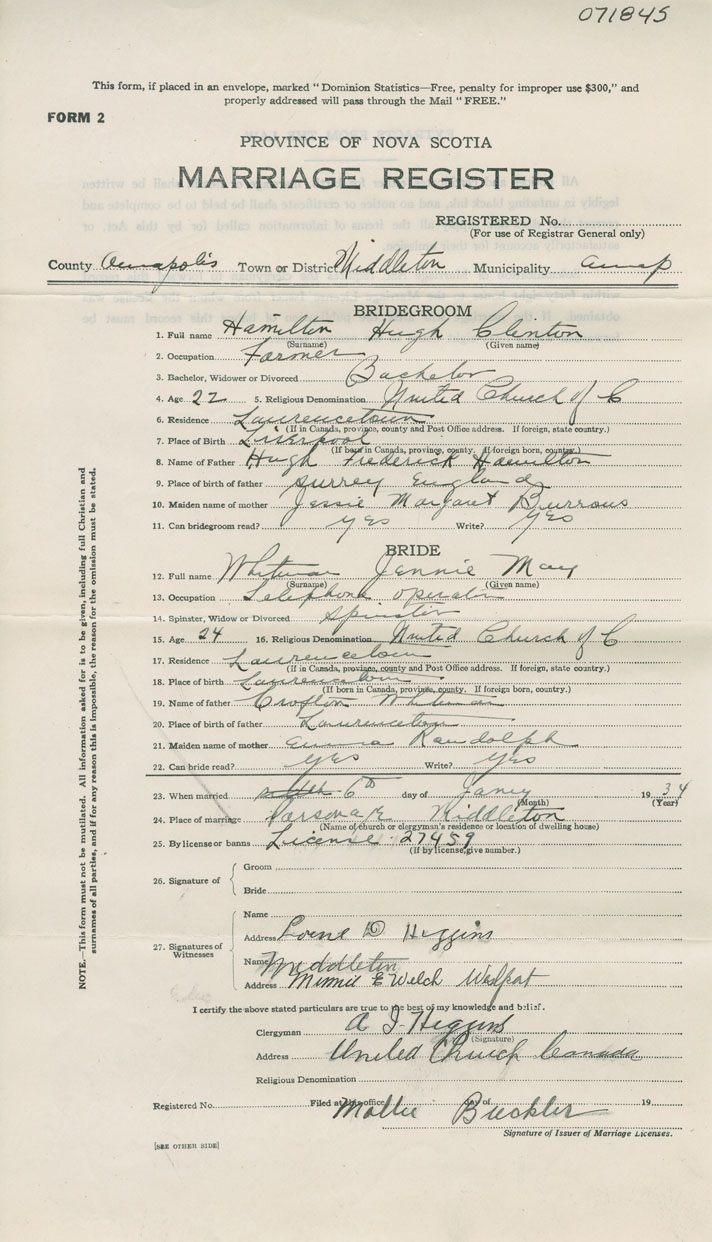 071845
This form, if placed in an envelope, marked "Dominion Statistics—Free, penalty for improper use $300," and
properly addressed will pass through the Mail "FREE."
FORM 2
PROVINCE OF NOVA SCOTIA
MARRIAGE REGISTER
REGISTERED No.
(For use of Registrar General only)
County Annapolis Town or District Middleton Municipality Annap
BRIDEGROOM
1. Full name Hamilton Hugh Clinton
(Surname) (Given name)
2. Occupation Farmer
3. Bachelor, Widower or Divorced Bachelor
4. Age 22 5. Religious Denomination United Church of C
6. Residence Lawrencetown
(If in Canada, province, county and Post Office address. If foreign, state country.)
7. Place of Birth Liverpool
(If born in Canada, province, county. If foreign born, country.)
8. Name of Father Hugh Frederick Hamilton
9. Place of birth of father Surrey England
10. Maiden name of mother Jessie Margaret Burrous
11. Can bridegroom read? yes Write? yes
BRIDE
12. Full name Whitman Jennie May
(Surname) (Given name)
13. Occupation Telephone operator
14. Spinster, Widow or Divorced Spinster
15. Age 24 16. Religious Denomination United Church of C
17. Residence Lawrencetown
(If in Canada, province, county and Post Office address. If foreign, state country.)
18. Place of birth Lawrencetown
(If born in Canada, province, county. If foreign born, country.)
19. Name of father Crofton Whitman
20. Place of birth of father Lawrencetown
21. Maiden name of mother Emma Randolph
22. Can bride read? yes Write? yes
23. When married 6th day of Jany 1934
(Month) (Year)
24. Place of marriage Parsonage Middleton
(Name of church or clergyman's residence or location of dwelling house)
25. By license or banns License 27459
(If by license, give number.)
26. Signature of Groom
Bride
27. Signatures of Witnesses
Name
Address Lorne D Higgins
Name Middleton
Address Minnie E Welch
I certify the above stated particulars are true to the best of my knowledge and belief.
Clergyman A J Higgins
(Signature)
Address United Church Canada
Religious Denomination
Registered No. Filed at this office day of 19
Mollie Buckler
Signature of Issuer of Marriage Licenses.
[SEE OTHER SIDE]
NOTE.—This form must not be mutilated. All information asked for is to be given, including full Christian and
surnames of all parties, and if for any reason this is impossible, the reason for the omission must be stated.